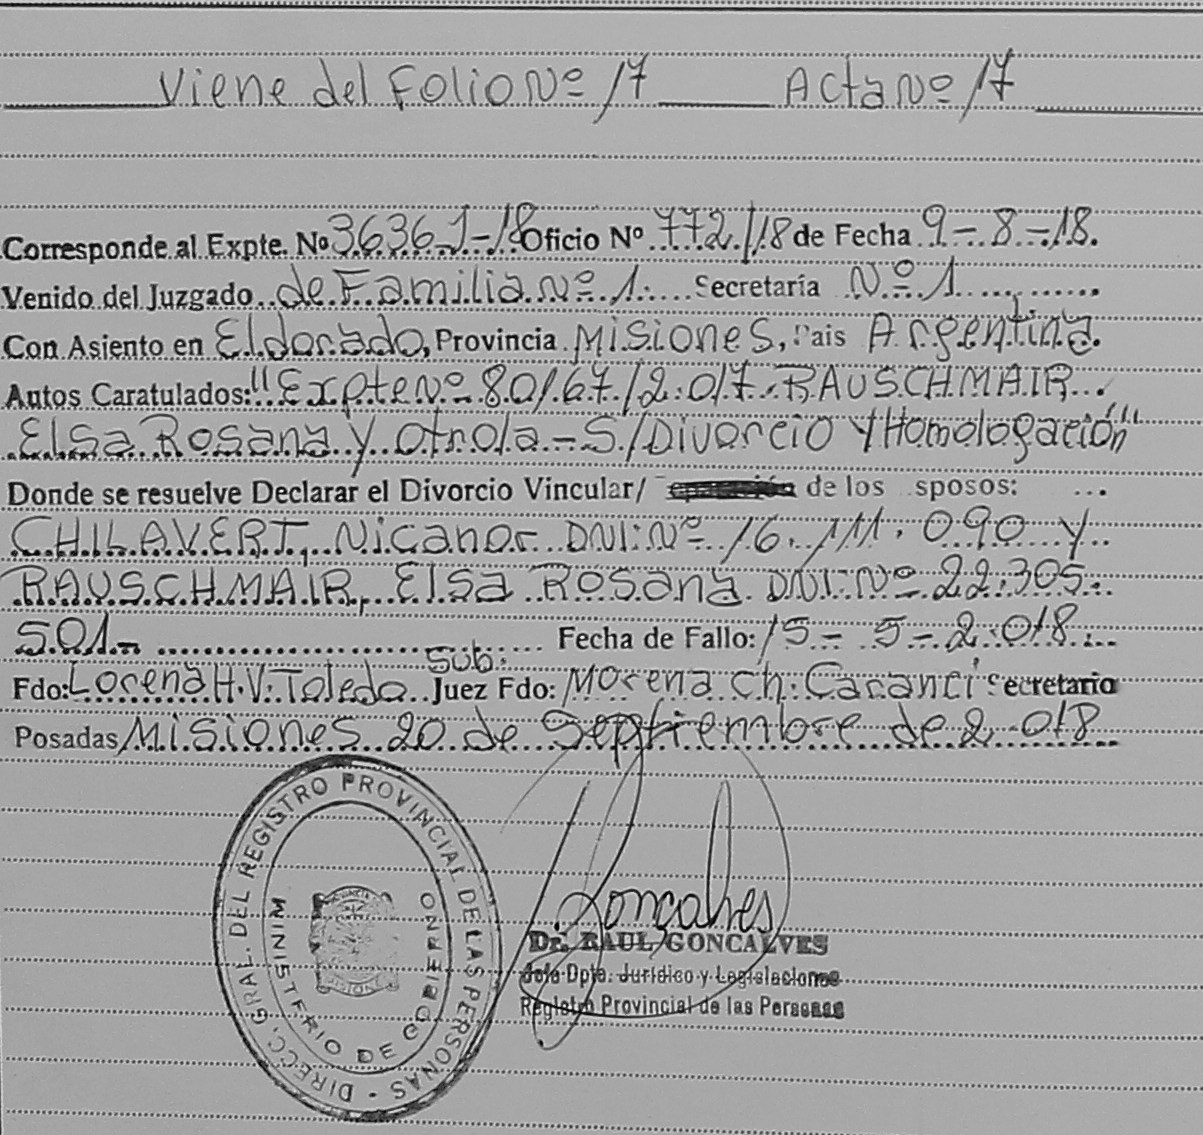 Viene del Folio Nº 17 Acta Nº 17
Corresponde al Expte. Nº 3636.1-18 Oficio Nº 772/18 de Fecha 9-8-18.
Venido del Juzgado de Familia Nº 1. Secretaría Nº 1
Con Asiento en Eldorado, Provincia Misiones, Pais Argentina.
Autos Caratulados: "Expte Nº 80167/2.017. RAUSCHMAIR
Elsa Rosana y otro/a - S/Divorcio y Homologación"
Donde se resuelve Declarar el Divorcio Vincular/ de los sposos:
CHILAVERT, Nicanor DNI: Nº 16.111.090 y
RAUSCHMAIR, Elsa Rosana DNI: Nº 22.305.
501.- Fecha de Fallo: 15-5-2.018.
Sub.
Fdo: Lorena H.V. Toledo Juez Fdo: Morena Ch. Caranci Secretario
Posadas Misiones 20 de Septiembre de 2.018
DIRECC. GRAL. DEL REGISTRO PROVINCIAL DE LAS PERSONAS
MINISTERIO DE GOBIERNO
MISIONES
Goncalves
Dr. RAUL GONCALVES
Jefe Dpto. Jurídico y Legislaciones
Registro Provincial de las Personas